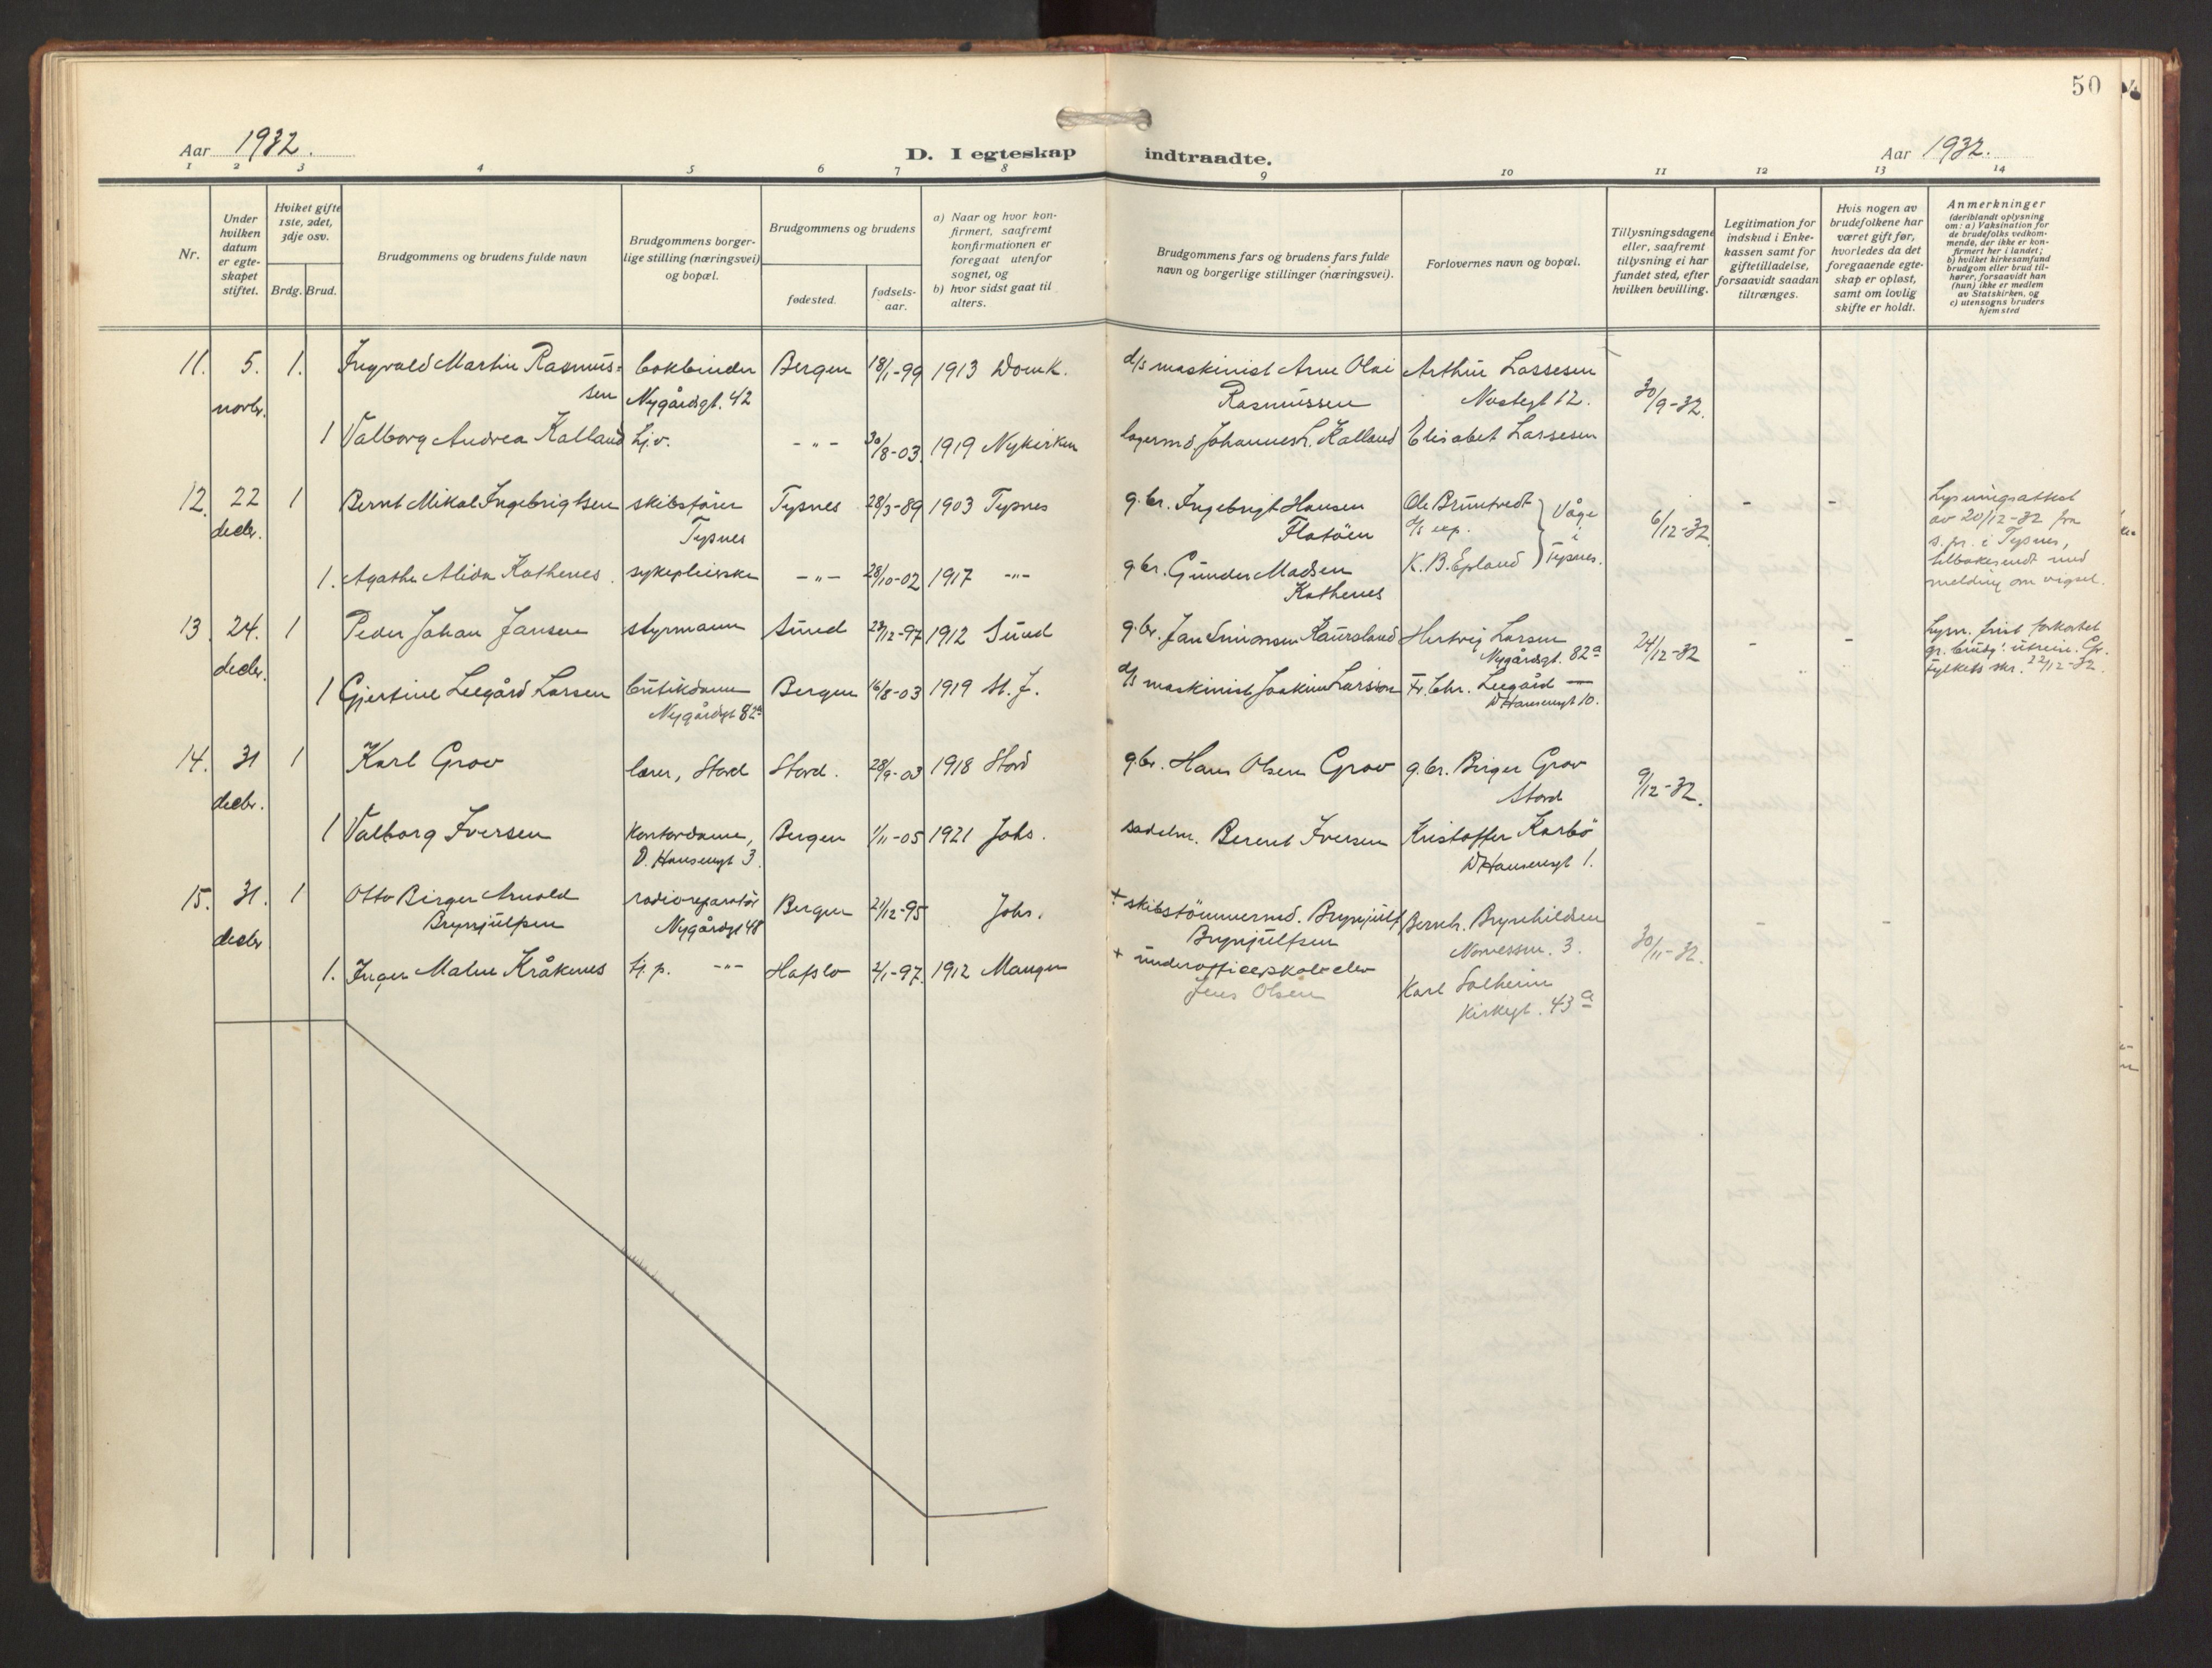 50
Aar 1932.
D. I egteskap indtraadte.
Aar 1932.
1 2 3 4 5 6 7 8 9 10 11 12 13 14
Nr.
Under hvilken datum er egte-skapet stiftet.
Hviket gifte 1ste, 2det, 3dje osv.
Brdg. Brud.
Brudgommens og brudens fulde navn
Brudgommens borger-lige stilling (næringsvei) og bopæl.
Brudgommens og brudens
fødested.
fødsels-aar.
a) Naar og hvor kon-firmert, saafremt konfirmationen er foregaat utenfor sognet, og
b) hvor sidst gaat til alters.
Brudgommens fars og brudens fars fulde navn og borgerlige stillinger (næringsvei).
Forlovernes navn og bopæl.
Tillysningsdagene eller, saafremt tillysning ei har fundet sted, efter hvilken bevilling.
Legitimation for indskud i Enke-kassen samt for giftetilladelse, forsaavidt saadan tiltrænges.
Hvis nogen av brudefolkene har været gift før, hvorledes da det foregaaende egte-skap er opløst, samt om lovlig skifte er holdt.
Anmerkninger
(deriblandt oplysning om: a) Vaksination for de brudefolks vedkom-mende, der ikke er kon-firmert her i landet; b) hvilket kirkesamfund brudgom eller brud til-hører, forsaavidt han (hun) ikke er medlem av Statskirken, og c) utensogns bruders hjemsted
11. 5. 1. Ingvald Martin Rasmus- bokbinder Bergen 18/1-99 1913 Domk. d/s maskinist Arne Olai Arthur Lassesen
novbr. sen Nygårdsgt. 42 Rasmussen Nostegt 12. 30/9-32.
1 Valborg Andrea Kalland Hj.v. -"- 30/8-03 1919 Nykirken lagermd. Johannes L. Kalland Elisabet Lassesen
12. 22 1 Bernt Mikal Ingebrigtsen skibsfører Tysnes 28/3-89 1903 Tysnes g.br. Ingebrigt Hansen Ole Bruntvedt Våge - - Lysningsattest
decbr. Tysnes Flatøen d/s exp. i 6/12-32. av 20/12-32 fra
s.pr. i Tysnes,
1. Agathe Alida Kathenes sykepleierske -"- 28/10-02 1917 -"- g.br. Gunder Madsen K. B. Epland Tysnes. tilbakesendt med
Kathenes melding om vigsel.
13. 24. 1 Peder Johan Jansen styrmann Sund 29/12-97 1912 Sund g.br. Jan Simonsen Kausland Hertvig Larsen 24/12-32 - - Lysn. frist forkortet
decbr. Nygårdsgt. 82a gr. brudg! utreise. Cfr.
fylkets skr. 22/12-32.
1 Gjertine Leegård Larsen butikdame Bergen 16/8-03 1919 St. J. d/s maskinist Joakim Larsen Fr. Chr. Leegård
Nygårdsgt 82a D Hansensgt 10.
14. 31 1 Karl Grov lærer, Stord Stord. 28/9-03 1918 Stord g.br. Hans Olsen Grov g.br. Birger Grov 9/12-32.
decbr. Stord
1 Valborg Iversen Kontordame, Bergen 1/11-05 1921 Johs. sadelm. Berent Iversen Kristoffer Karbø
D. Hansensgt 3. D Hansensgt 1.
15. 31. 1 Otto Birger Arnold radioreparatør Bergen 21/12-95 Johs. † skibstømmermd. Brynjulf Bernh. Brynhildsen - -
decbr Brynjulfsen Nygårdsgt 48 Brynjulfsen 3. 30/11-32.
1. Inger Malene Kråkenes Hj. p. -"- Hafslo 2/1-97. 1912 Manger † underofficerskole elev Karl Solheim
Jens Olsen Kirkegt. 43a